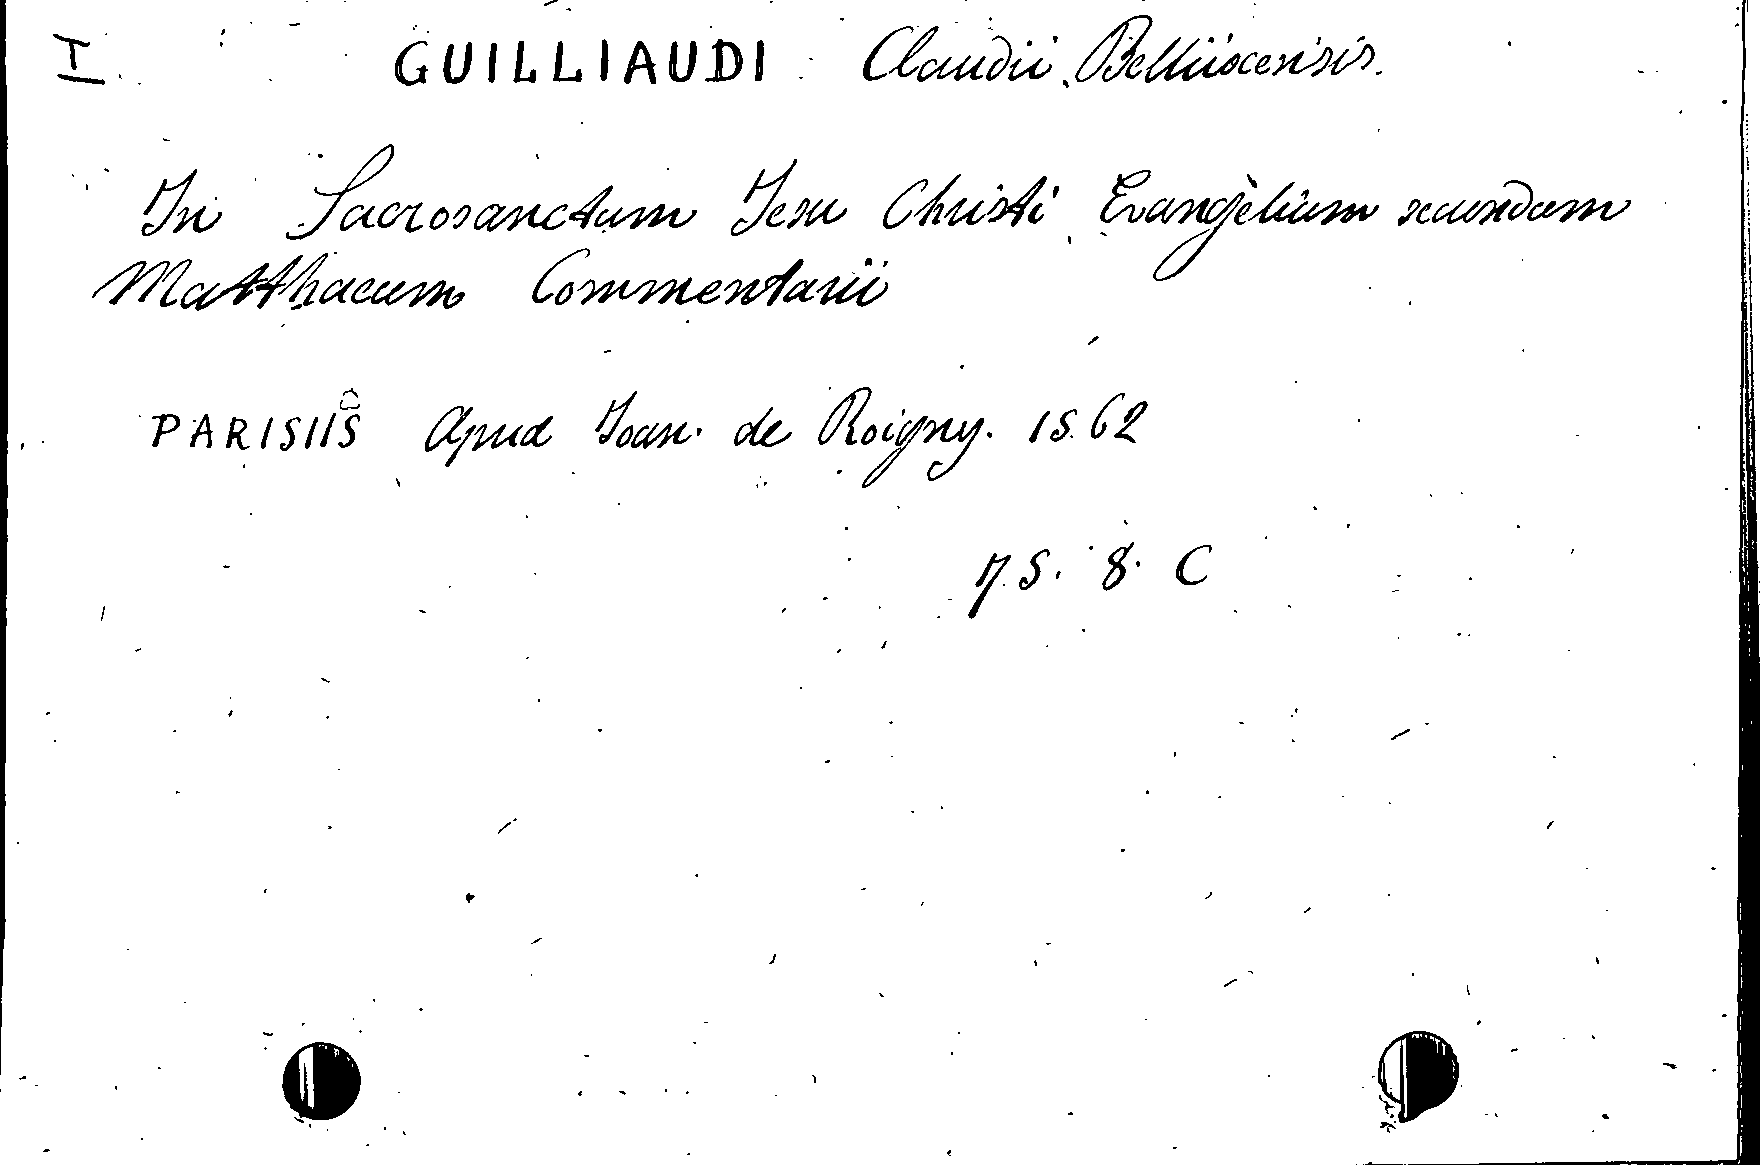 I GUILLIAUDI Claudii Bellüocensis.
In Sacrosanctum Jesu Christi Evangelium secundum
Matthaeum Commentarii
PARISIIS Apud Joan. de Roigny. 1562
75. 8. C